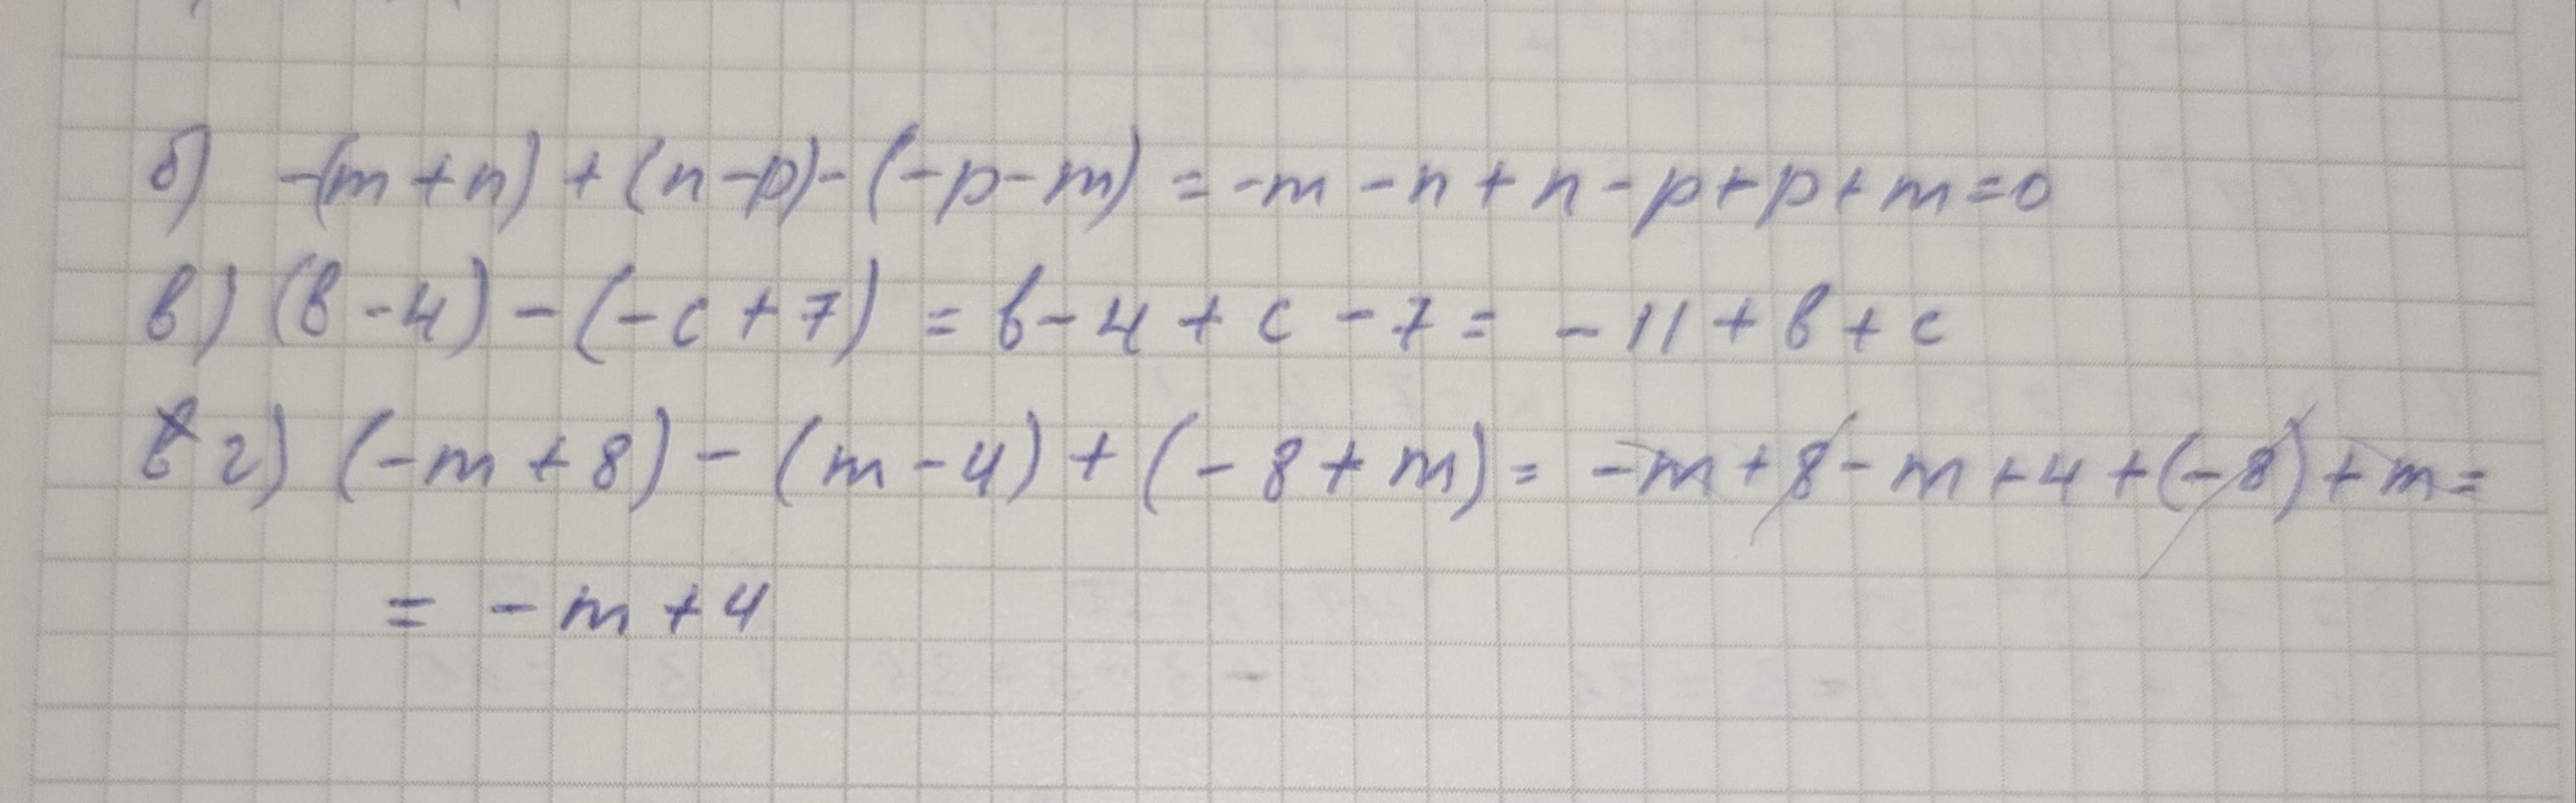 б) -(m+n) + (n-p) - (-p-m) = -m - n + n - p + p + m = 0
в) (b-4) - (-c+7) = b - 4 + c - 7 = -11 + b + c
г) (-m+8) - (m-4) + (-8+m) = -m + 8 - m + 4 + (-8) + m =
= -m + 4